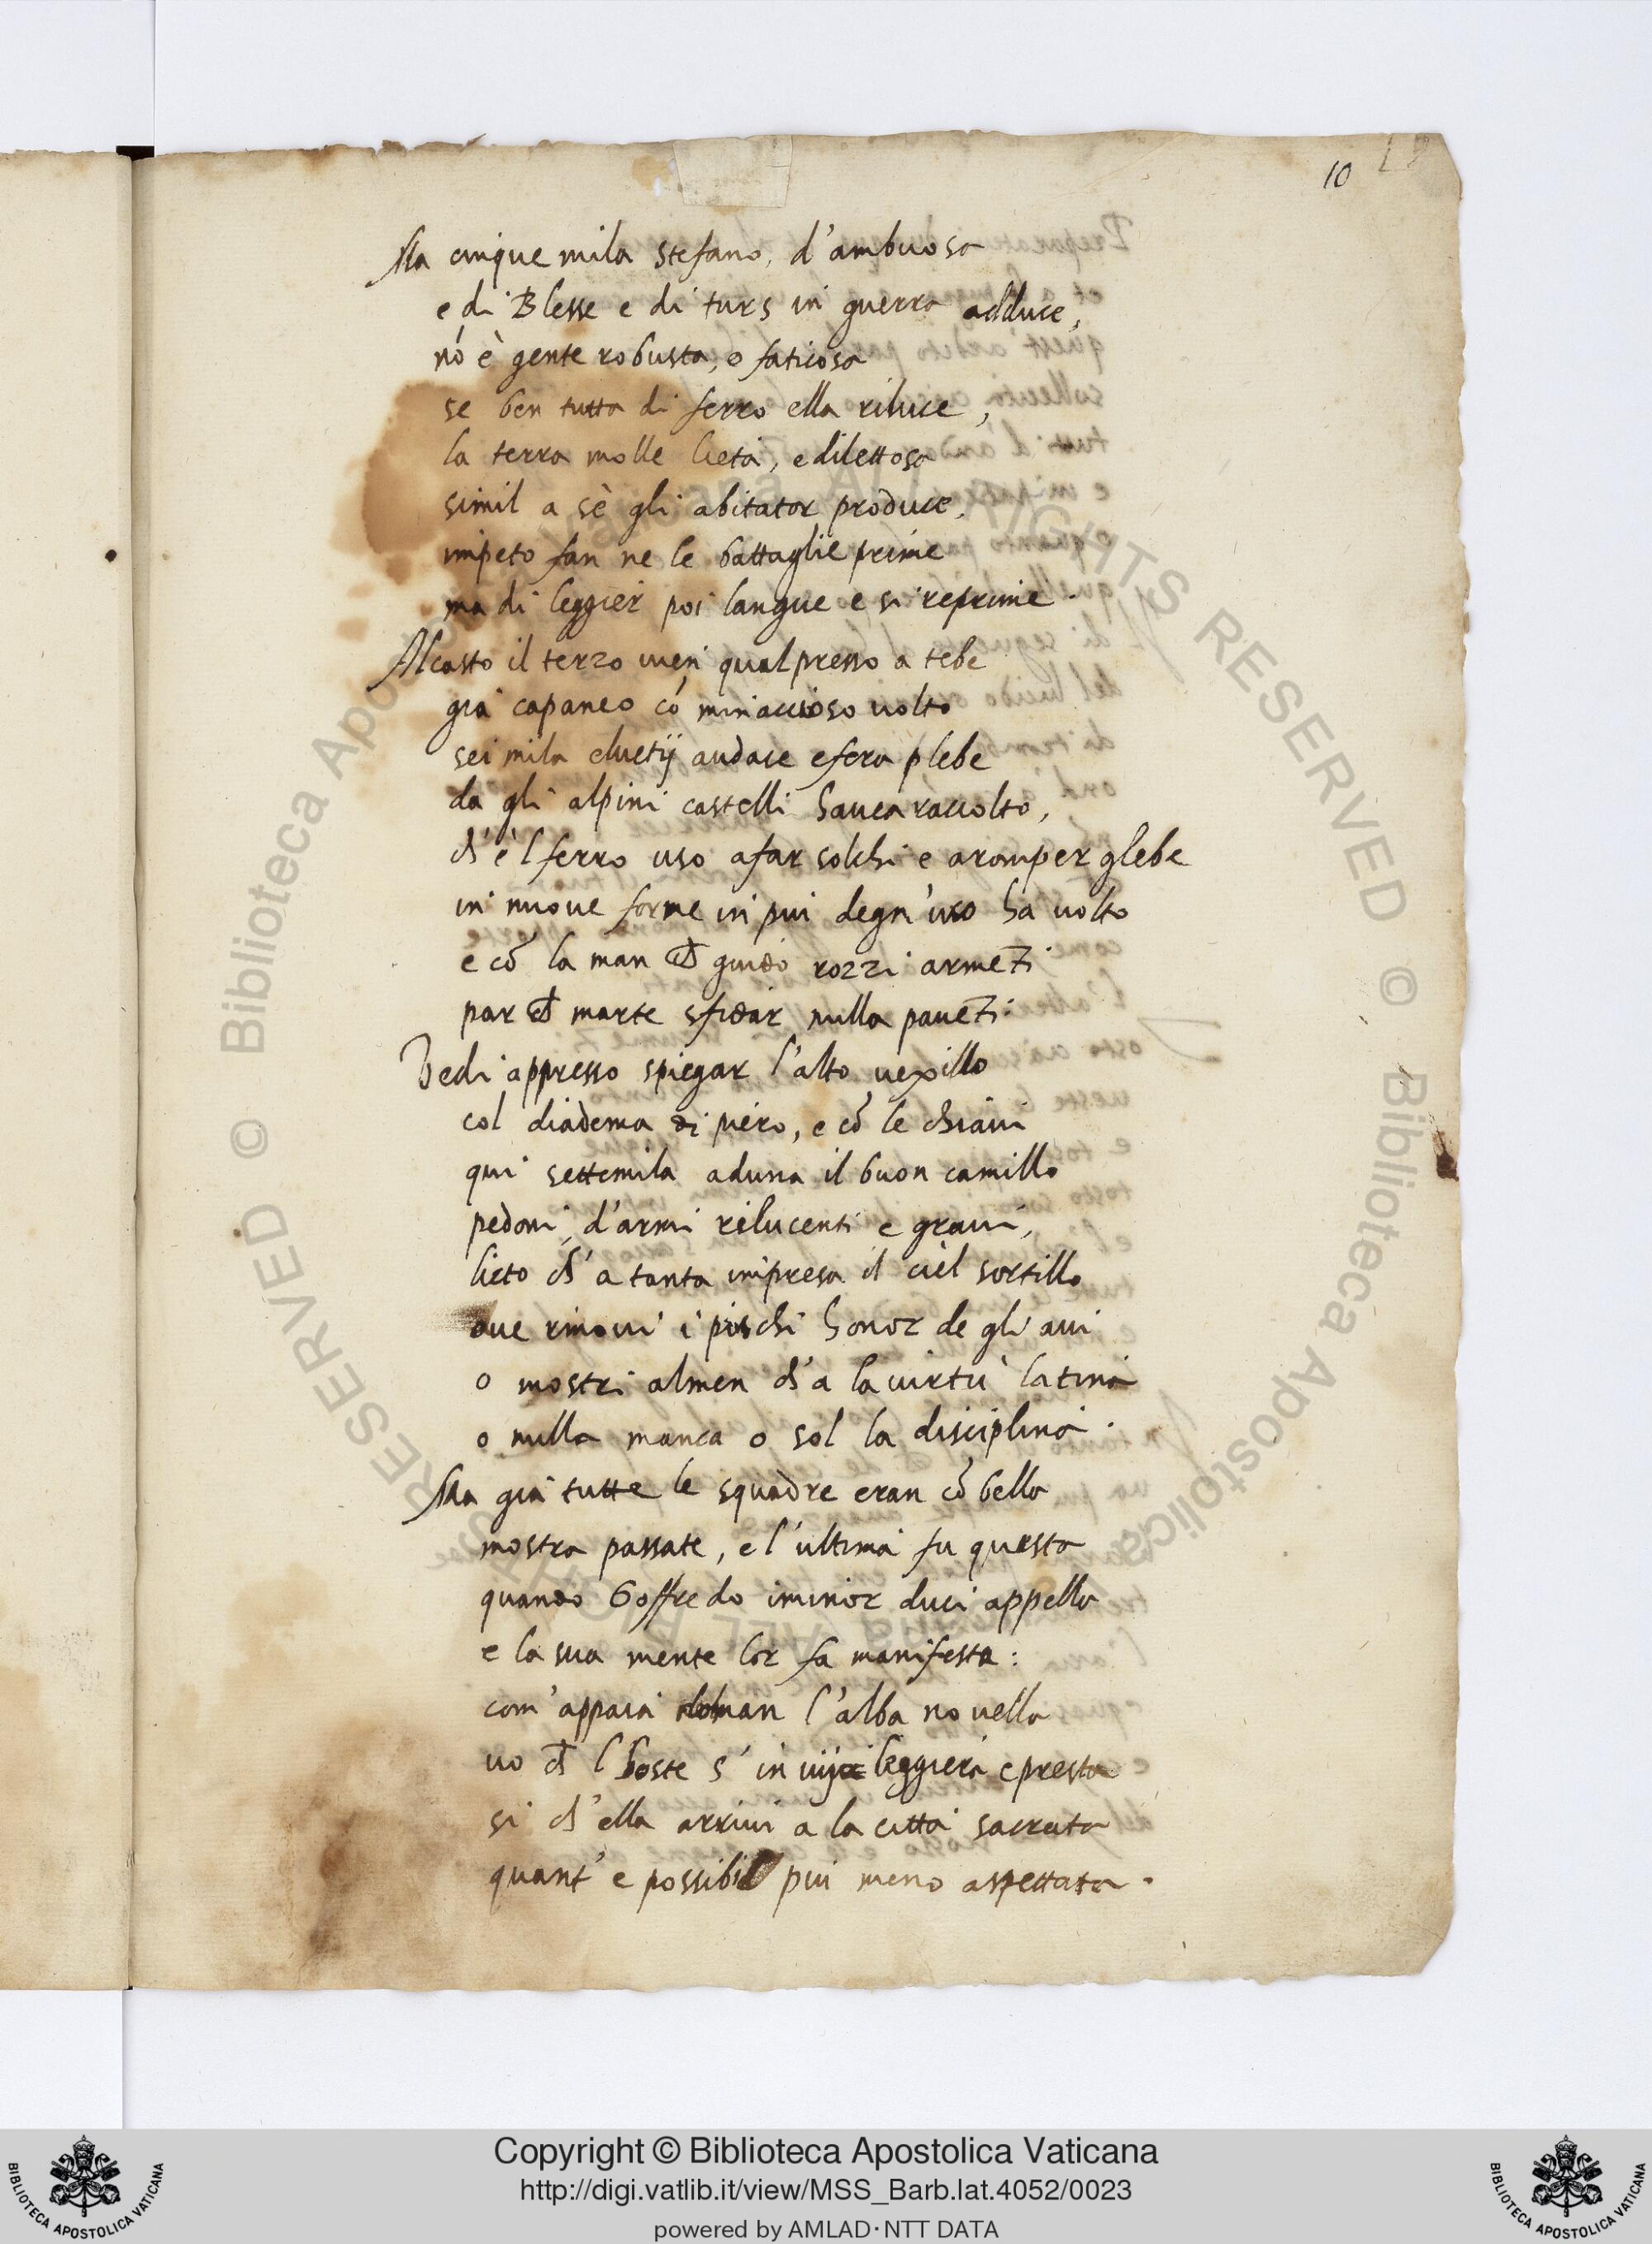 10
Ma cinque mila Stefano, d'ambuosa
e di Blesse e di turs in guerra adduce,
nō è gente robusta, o faticosa
se ben tutta di ferro ella riluce,
la terra molle lieta, e dilettosa
simil a sè gli abitator produce,
impeto fan ne le battaglie prime
ma di leggier poi langue e si reprime.
Alcasto il terzo vien qual presso a tebe
già capaneo cō minaccioso volto
sei mila elvetij audace e fera plebe
da gli alpini castelli havea raccolto,
ch'è l ferro uso a far solchi e a romper glebe
in nuove forme in piu degn'uso ha volto
e cō la man ch̄ guidò rozzi armēti
par ch̄ marte sfidar nulla pavēti.
Vedi appresso spiegar l'alto vexillo
col diadema di piero, e cō le chiavi
qui settemila aduna il buon camillo
pedoni, d'armi rilucenti e gravi,
lieto ch'a tanta impresa il ciel sortillo
ove rinovi i prischi honor de gli avi
o mostri almen ch'a la virtù latina
o nulla manca o sol la disciplina.
Ma già tutte le squadre eran cō bella
mostra passate, e l'ultima fu questa
quando Goffredo i minor duci appella
e la sua mente lor fa manifesta:
com'appaia doman l'alba novella
vo ch̄ l hoste s'invij leggiera e presta
si ch'ella arrivi a la città sacrata
quant'e possibil piu meno aspettata.
Copyright © Biblioteca Apostolica Vaticana
http://digi.vatlib.it/view/MSS_Barb.lat.4052/0023
powered by AMLAD·NTT DATA
BIBLIOTECA APOSTOLICA VATICANA
BIBLIOTECA APOSTOLICA VATICANA